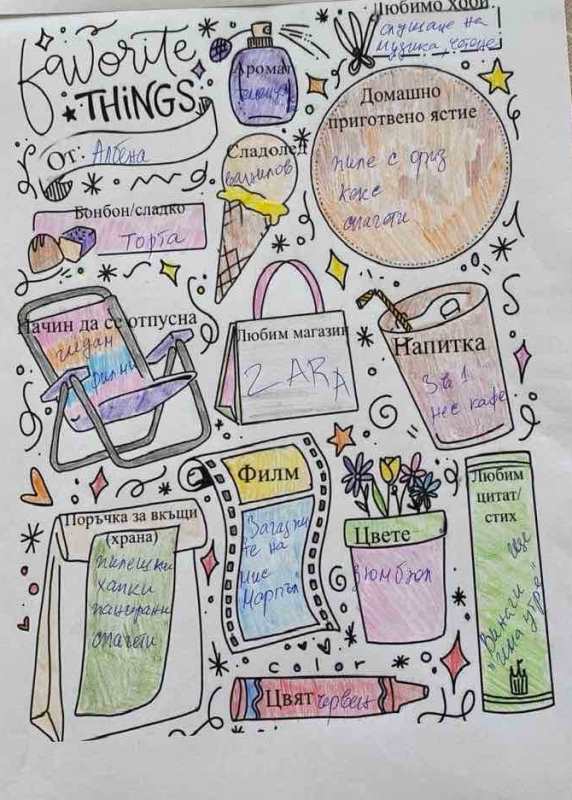 Favorite
THINGS
От: Албена
Аромат
Любимо хоби
слушане на
музика, четене
Домашно
приготвено ястие
пиле с ориз
кекс
спагети
Сладолед
ванилов
Бонбон/сладко
Торта
Начин да се отпусна
гледам
филми
Любим магазин
ZARA
Напитка
3 в 1
нес кафе
Поръчка за вкъщи
(храна)
пилешки
хапки
панирани
спагети
Филм
на
мис
Марпъл
Цвете
зюмбюл
Любим
цитат/
стих
Винаги
ще
има утре"
color
Цвят червен